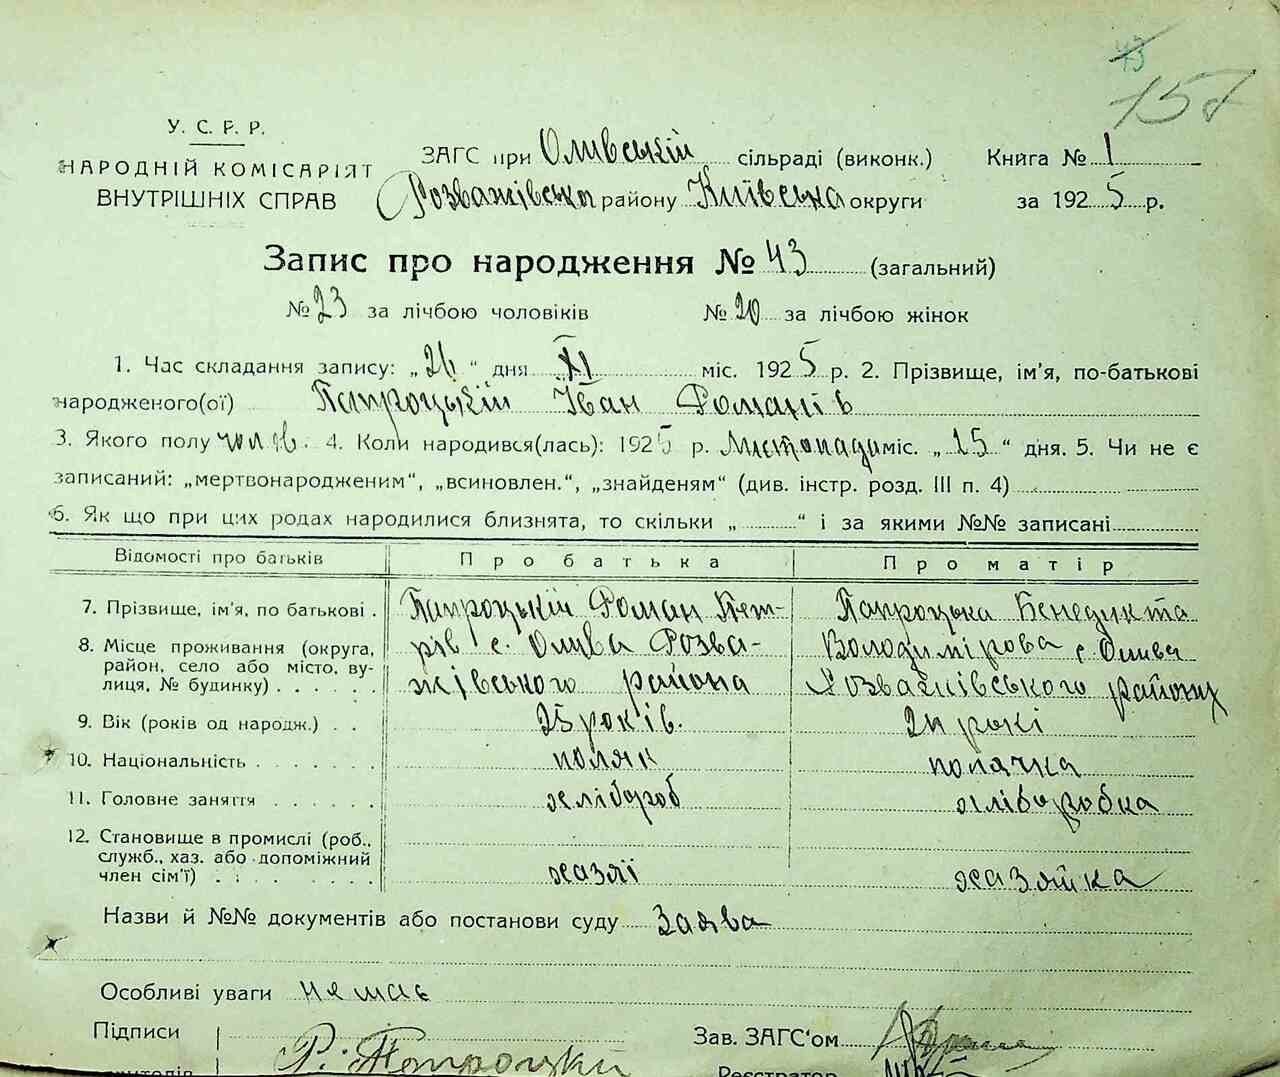 43
157
У. С. Р. Р.
НАРОДНІЙ КОМІСАРІЯТ
ВНУТРІШНІХ СПРАВ
ЗАГС при Оливській сільраді (виконк.) Книга № 1
Розважівська району Київська округи за 1925 р.
Запис про народження № 43 (загальний)
№ 23 за лічбою чоловіків № 20 за лічбою жінок
1. Час складання запису: „26“ дня XI міс. 1925 р. 2. Прізвище, ім'я, по-батькові
народженого(ої) Папроцький Іван Романів
3. Якого полу чолов. 4. Коли народився(лась): 1925 р. Листопада міс. „25“ дня. 5. Чи не є
записаний: „мертвонародженим“, „всиновлен.“, „знайденям“ (див. інстр. розд. III п. 4)
6. Як що при цих родах народилися близнята, то скільки „ “ і за якими №№ записані
Відомості про батьків Про батька Про матір
7. Прізвище, ім'я, по батькові . Папроцькій Роман Пет- Папроцька Бенедикта
8. Місце проживання (округа, рів с. Олива Розва- Володимірова с. Олива
район, село або місто, ву-
лиця, № будинку) . . . . . . жівського района Розважівського району
9. Вік (років од народж.) . . 25 років. 24 рокі
10. Національність . . . . . . . поляк полячка
11. Головне заняття . . . . . . хлібороб хліборобка
12. Становище в промислі (роб.,
служб., хаз. або допоміжний
член сім'ї) . . . . . . . . хазяї хазяйка
Назви й №№ документів або постанови суду Заява
Особливі уваги немає
Підписи Р. Папроцки Зав. ЗАГС'ом
Реєстратор